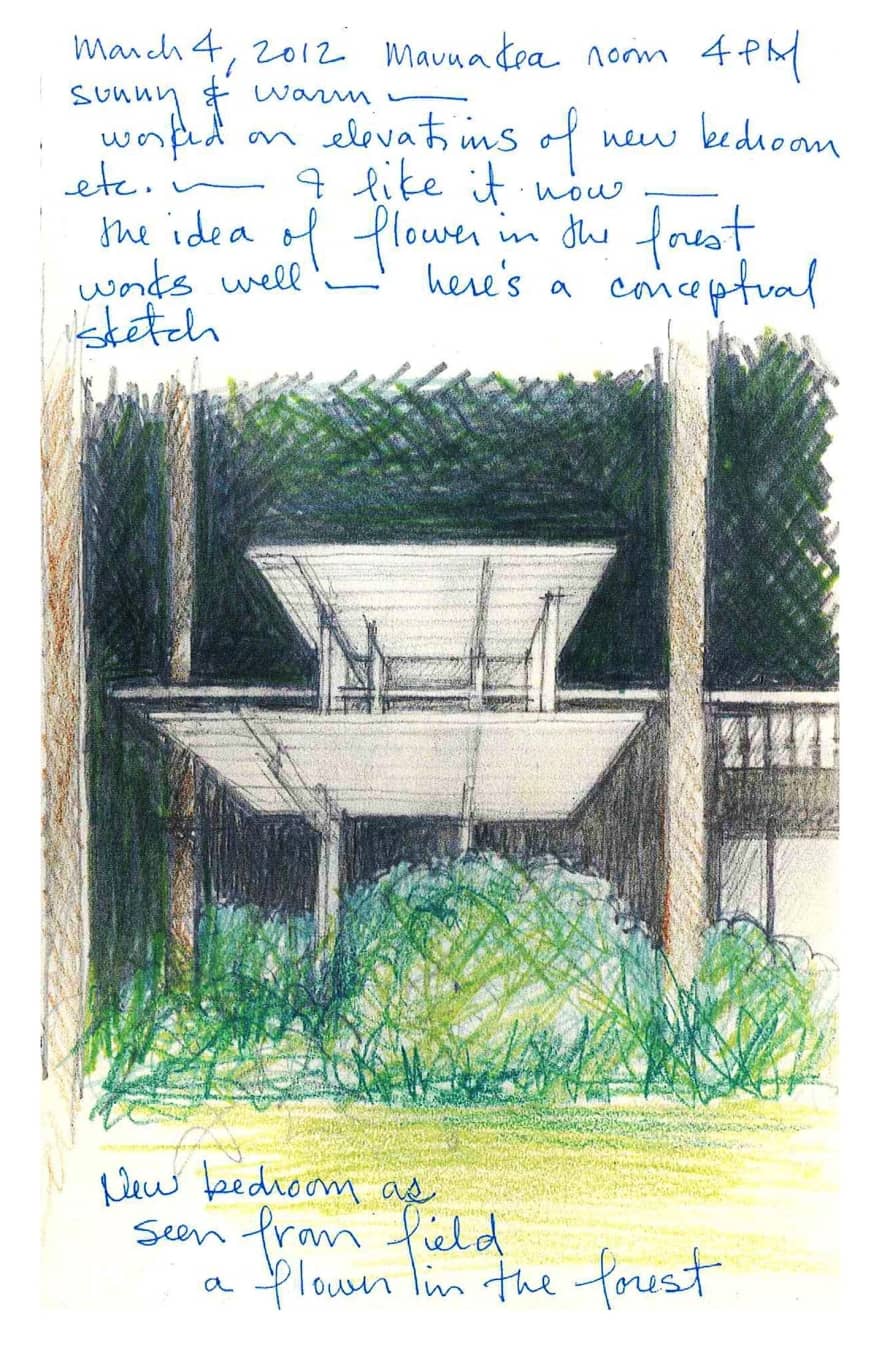 March 4, 2012 Maunakea room 4 PM
sunny & warm —
worked on elevations of new bedroom
etc. — I like it now —
the idea of flower in the forest
works well — here's a conceptual
sketch
New bedroom as
seen from field
a flower in the forest